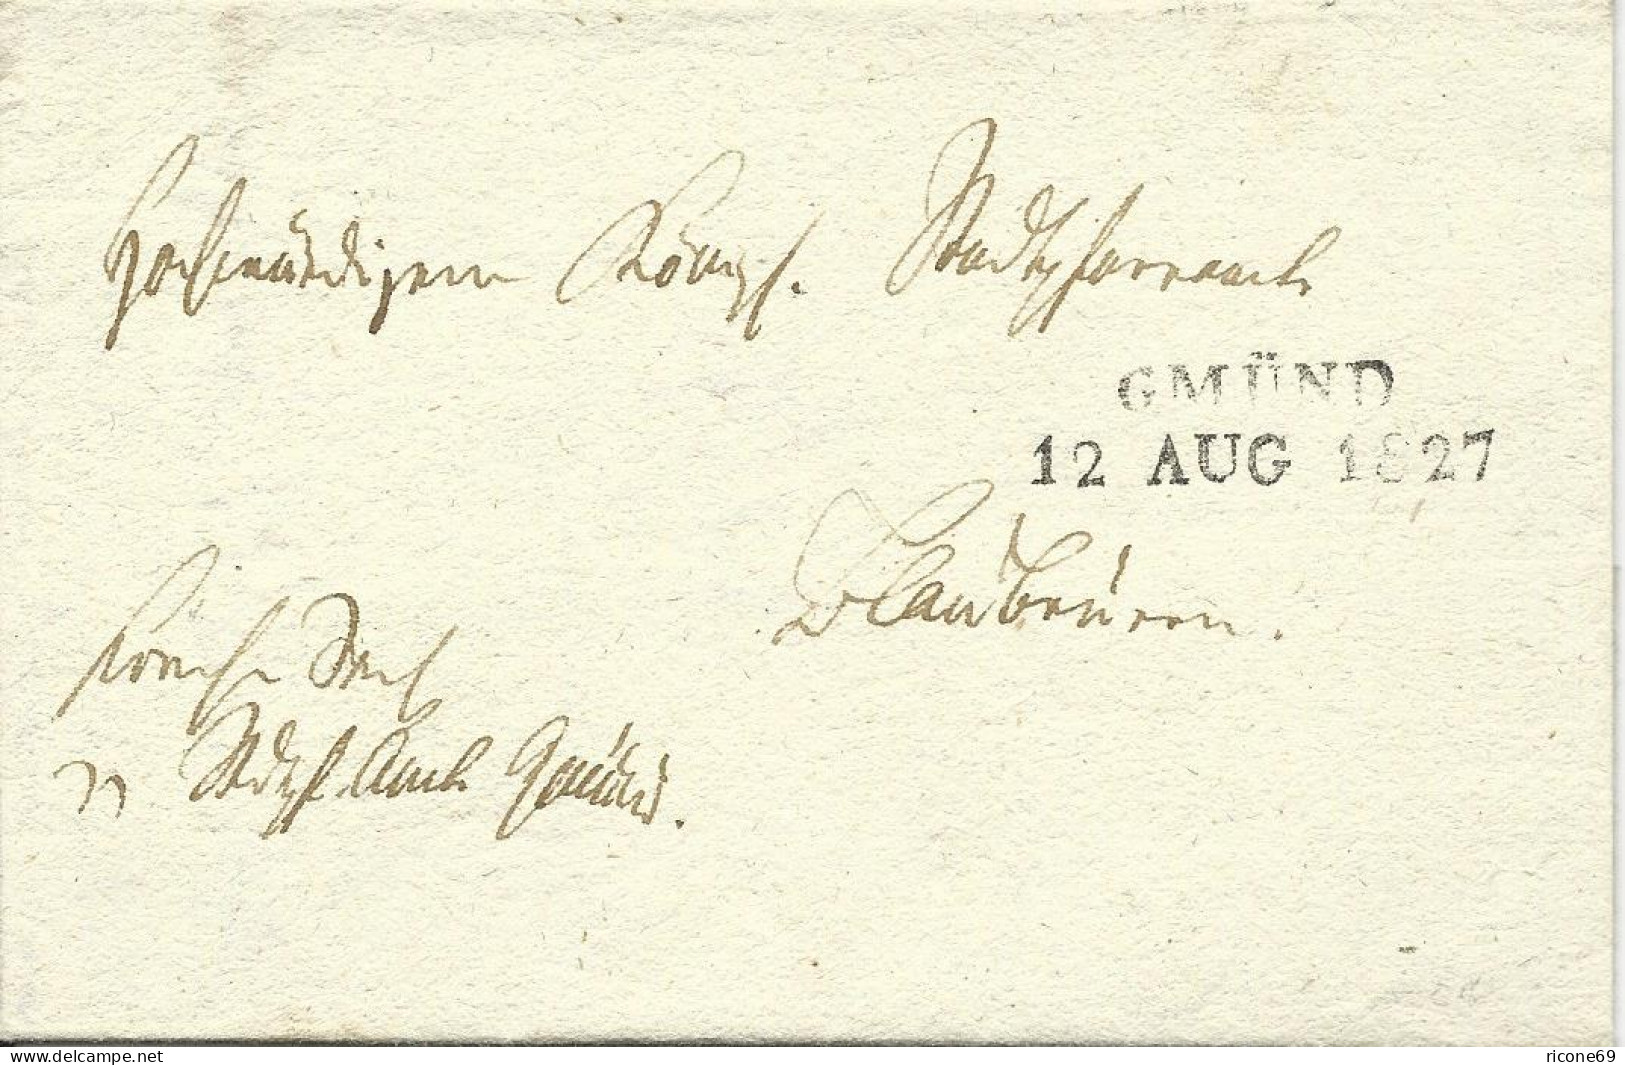 Hochwürdigem Königl. Stadtpfarramt
GMÜND
12 AUG 1827
Blaubeuren.
Kirchen Sach
v. Stdtpf. Amt Gmünd.
www.delcampe.net
ricone69